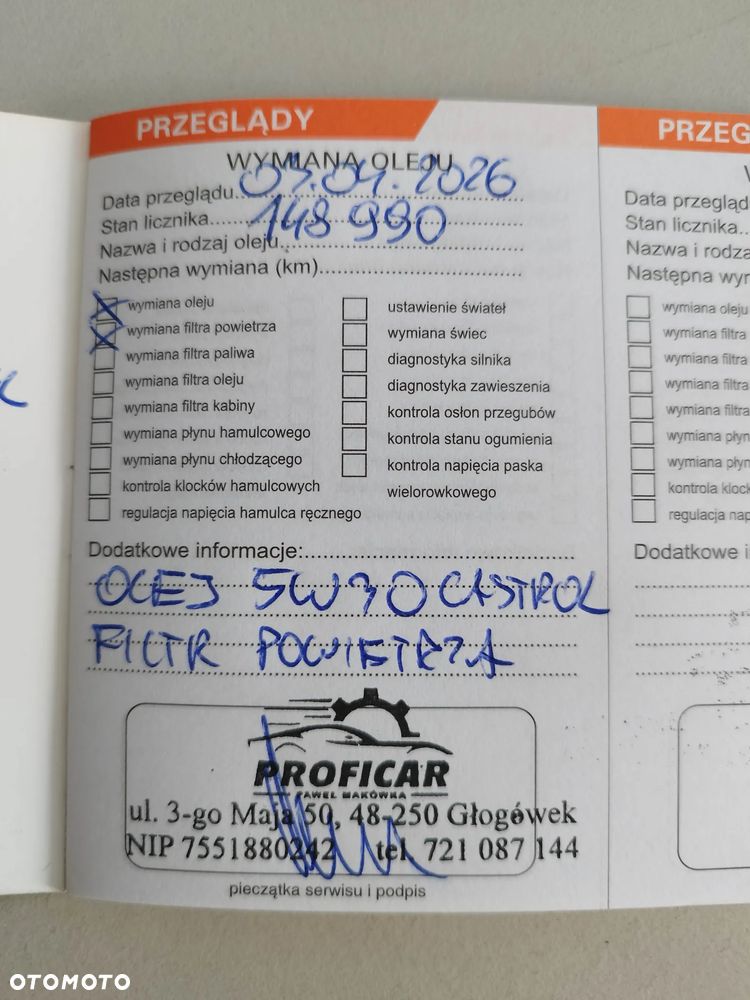 PRZEGLĄDY
WYMIANA OLEJU
Data przeglądu 03.04.2026
Stan licznika 148 990
Nazwa i rodzaj oleju
Następna wymiana (km)
wymiana oleju
wymiana filtra powietrza
wymiana filtra paliwa
wymiana filtra oleju
wymiana filtra kabiny
wymiana płynu hamulcowego
wymiana płynu chłodzącego
kontrola klocków hamulcowych
regulacja napięcia hamulca ręcznego
ustawienie świateł
wymiana świec
diagnostyka silnika
diagnostyka zawieszenia
kontrola osłon przegubów
kontrola stanu ogumienia
kontrola napięcia paska
wielorowkowego
Dodatkowe informacje:
OLEJ 5W30 CASTROL
FILTR POWIETRZA
PROFICAR
PAWEŁ MAKÓWKA
ul. 3-go Maja 50, 48-250 Głogówek
NIP 7551880242 tel. 721 087 144
pieczątka serwisu i podpis
PRZEG
Data przegląd
Stan licznika..
Nazwa i rodza
Następna wym
wymiana oleju
wymiana filtra
wymiana filtra
wymiana filtra
wymiana filtra
wymiana płyn
wymiana płyn
kontrola klock
regulacja nap
Dodatkowe i
OTOMOTO